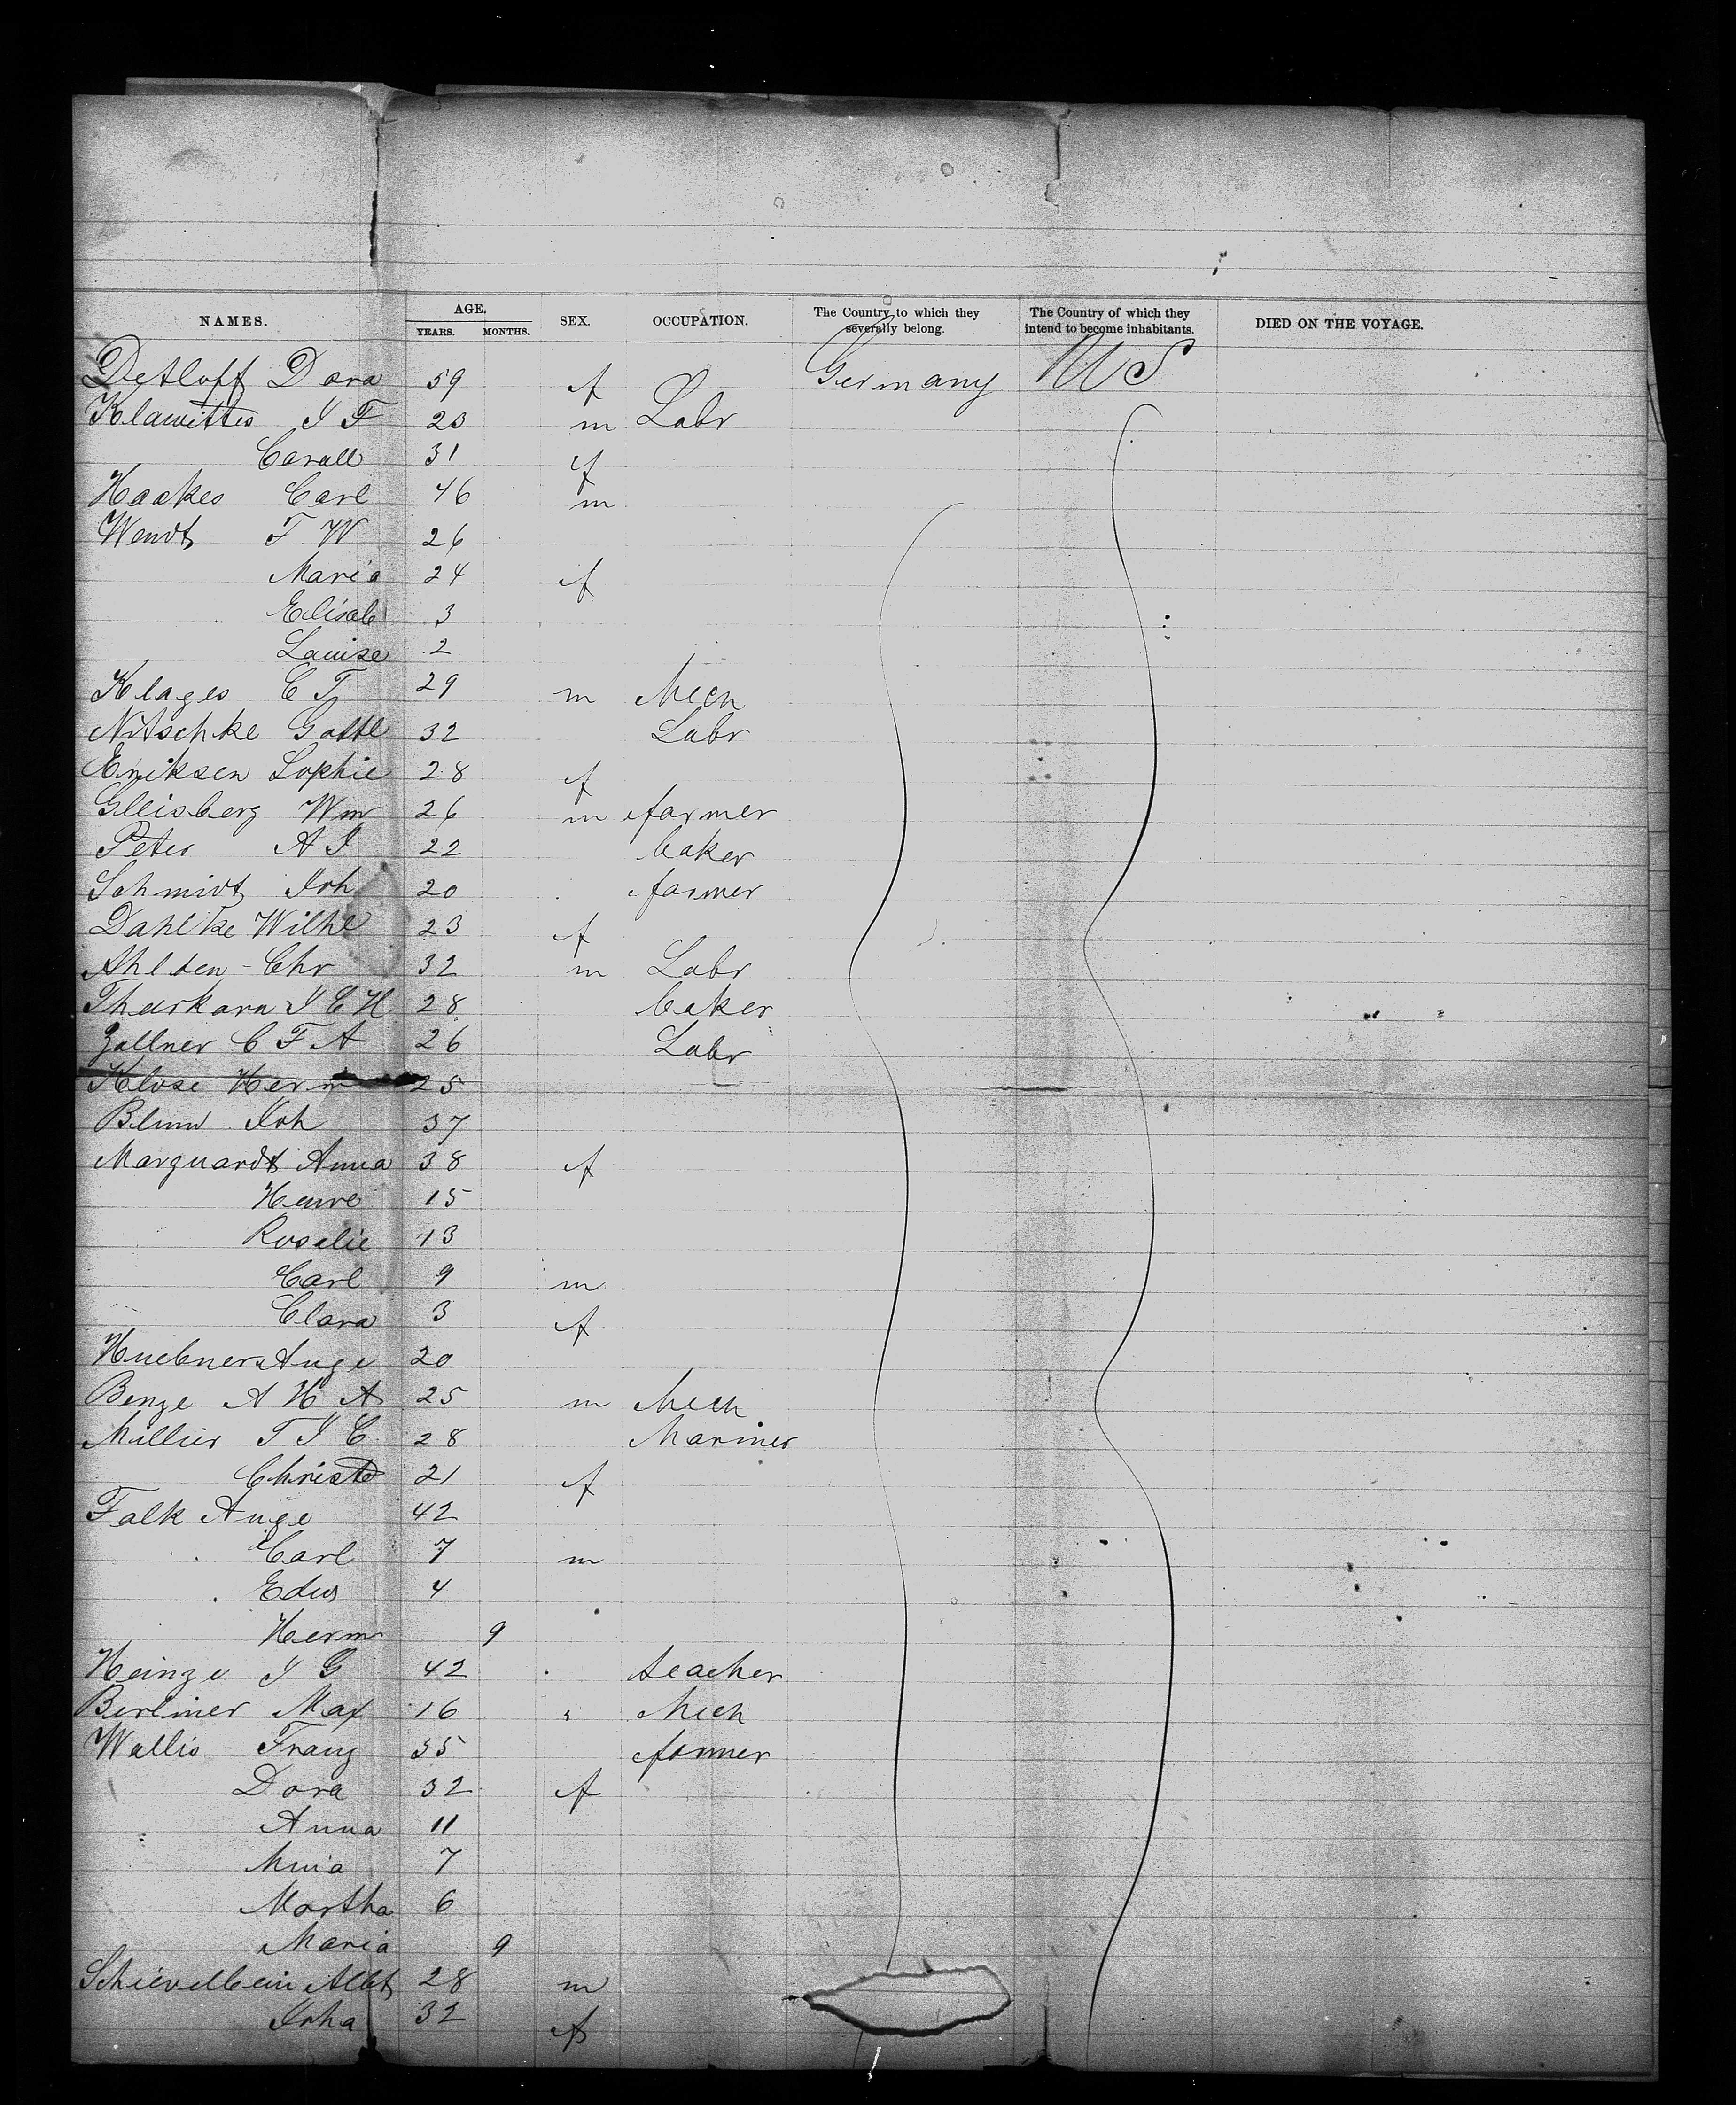 NAMES. AGE. SEX. OCCUPATION. The Country to which they severally belong. The Country of which they intend to become inhabitants. DIED ON THE VOYAGE.
YEARS. MONTHS.
Detloff Dora 59 f Germany US
Klawitter J F 23 m Labr
Caroll 31 f
Haakes Carl 46 m
Wendt F W 26
Maria 24 f
Elisab 3
Louise 2
Klages C F 29 m Mech
Nitschke Gottl 32 Labr
Eriksen Sophie 28 f
Gleisberg Wm 26 m farmer
Peter A J 22 baker
Schmidt Joh 20 farmer
Dahlke Wilhe 23 f
Ahlden - Chr 32 m Labr
J C H 28 baker
Zallner C F A 26 Labr
Klose Herm 25
Blum Joh 37
Marquardt Anna 38 f
Henre 15
Rosalie 13
Carl 9 m
Clara 3 f
Huebner Auge 20
Benze A H A 25 m Mech
Muller F J C 28 Mariner
Christe 21 f
Falk Auge 42
Carl 7 m
Edw 4
Herm 9
Heinze J G 42 teacher
Berliner Max 16 " Mech
Wallis Franz 35 farmer
Dora 32 f
Anna 11
7
Martha 6
Maria 9
Schievelbein Albt 28 m
Joha 32 f